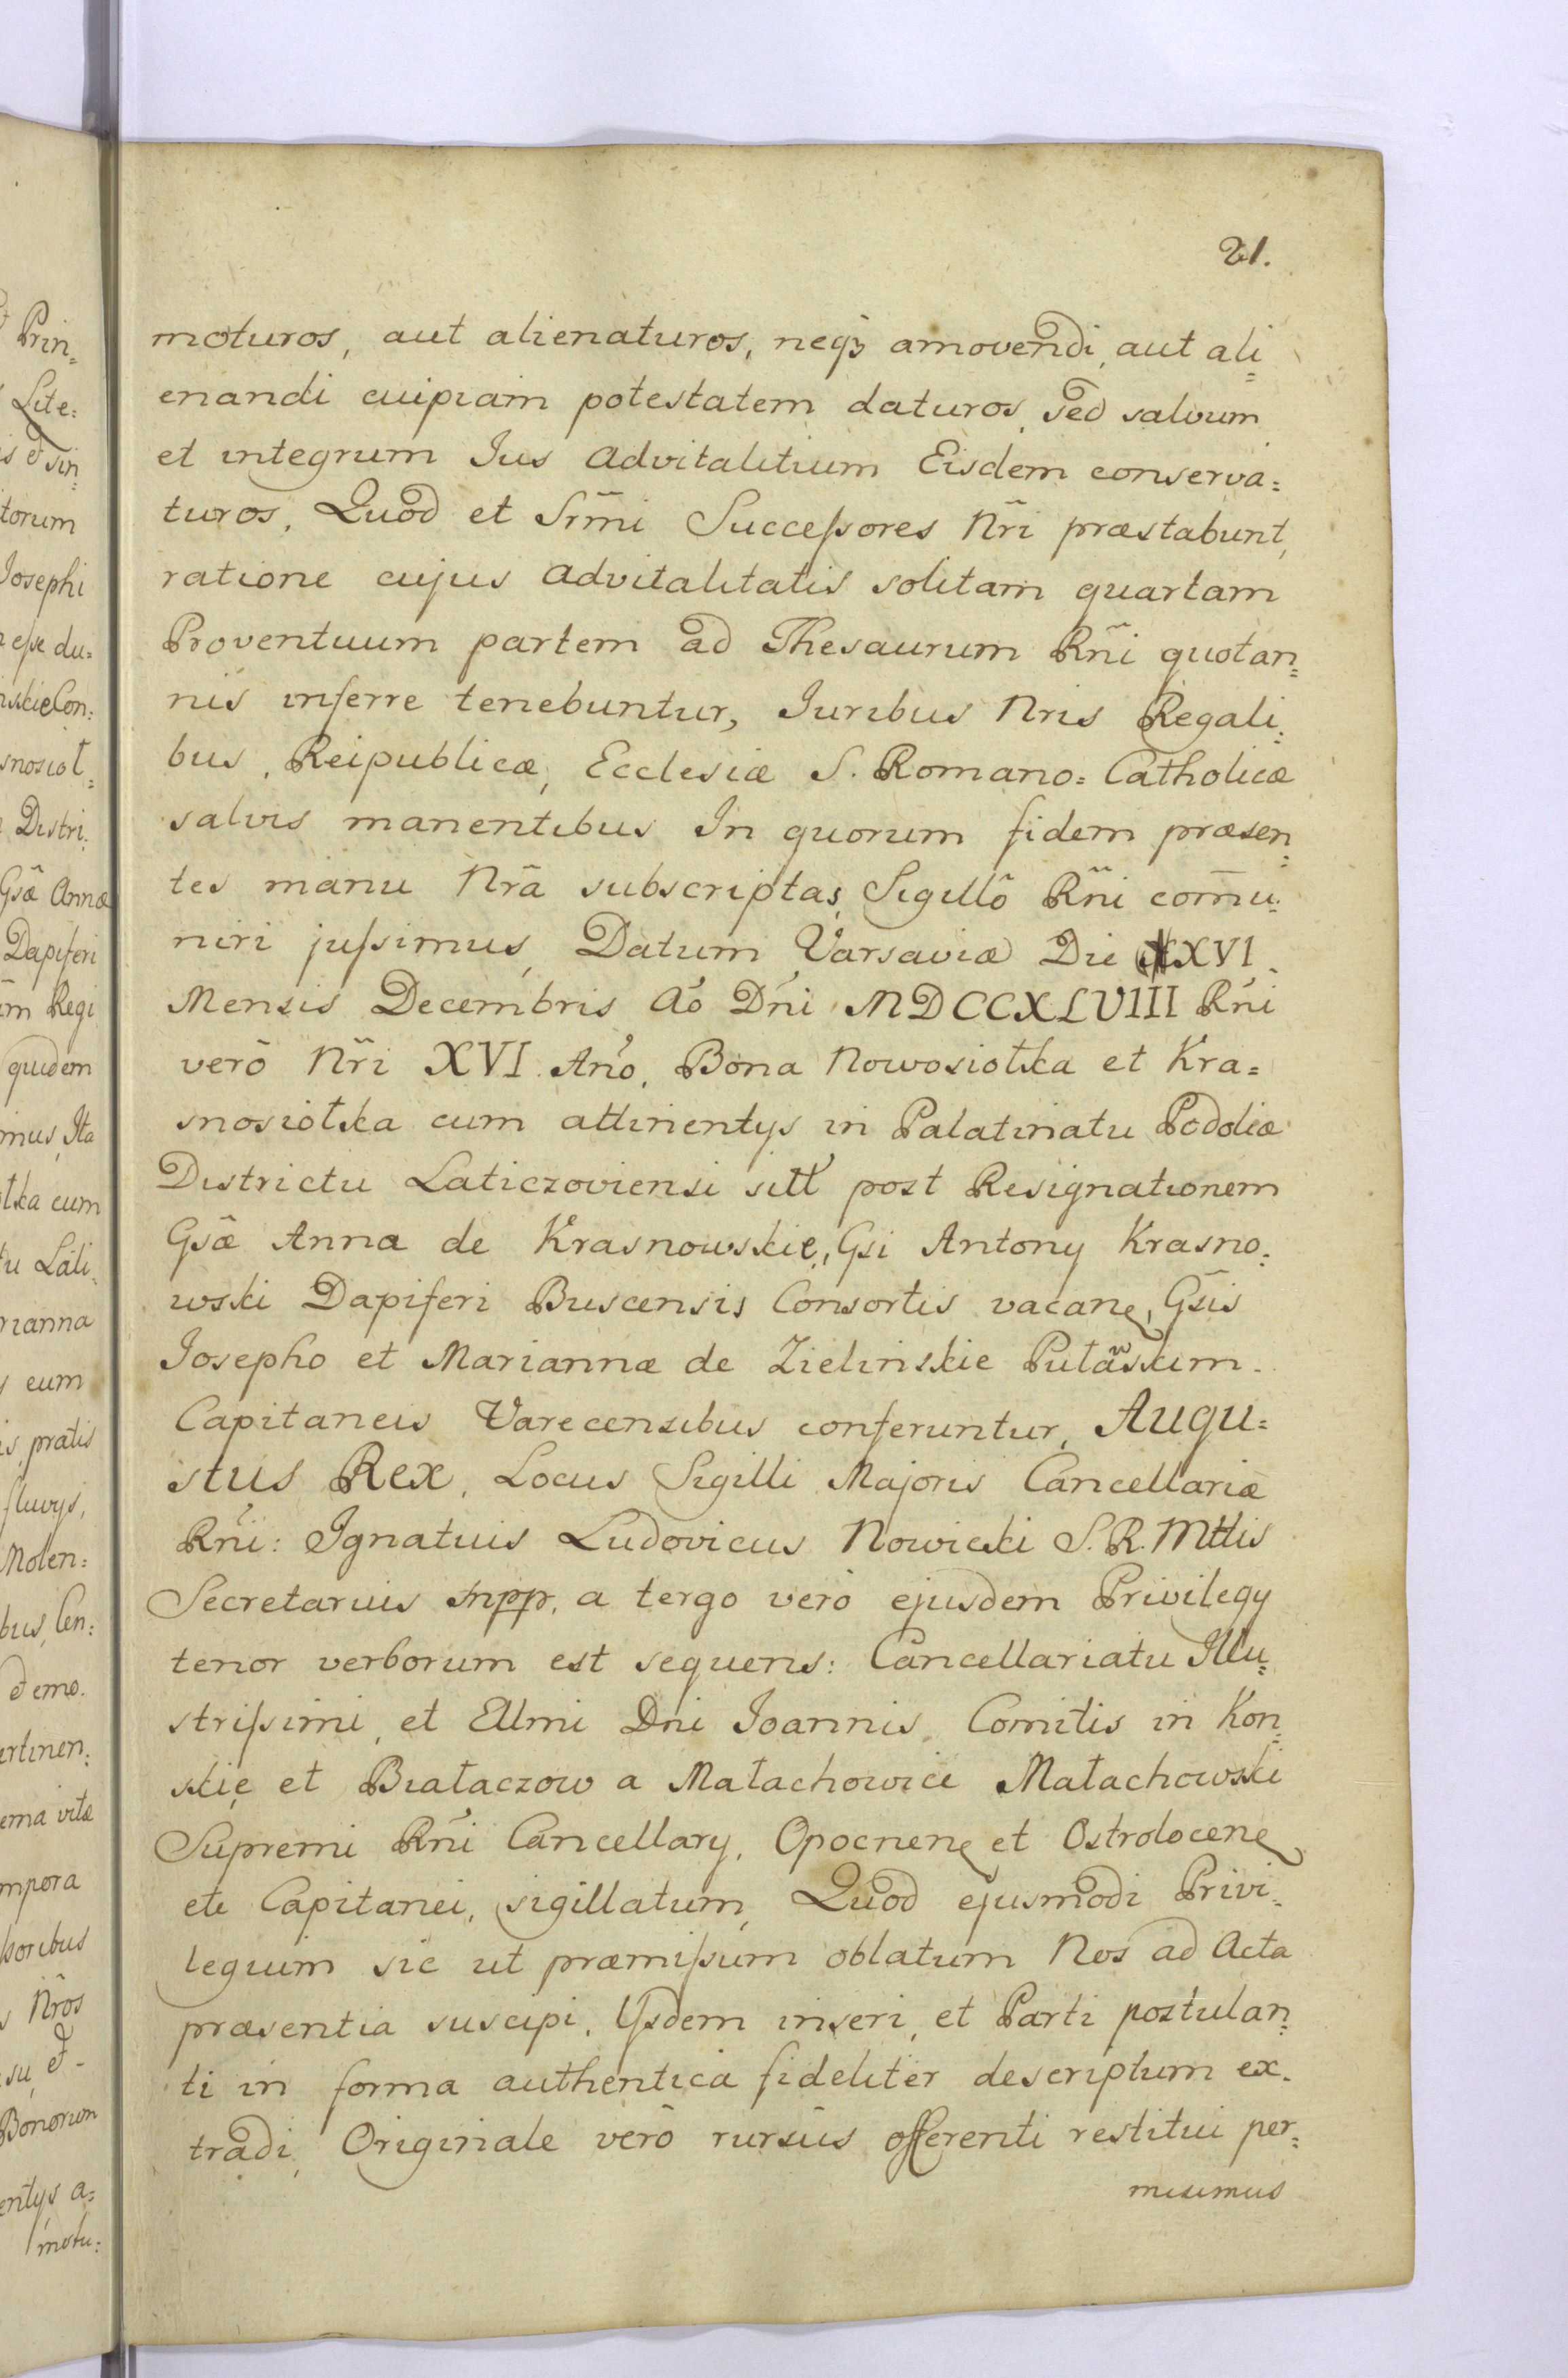 21.
moturos, aut alienaturos, neqȝ amovendi, aut ali=
enandi cuipiam potestatem daturos, sed salvum
et integrum Jus advitalitium Eisdem conserva=
turos. Quod et Srm̃i Succeſsores Nr̃i præstabunt,
ratione cujus advitalitatis solitam quartam
Proventuum partem ad Thesaurum Rñi quotan=
nis inferre tenebuntur, Juribus Nris Regali=
bus, Reipublicæ, Ecclesiæ S. Romano=Catholicæ
salvis manentibus In quorum fidem præsen=
tes manu Nrã subscriptas, Sigillô Rñi com̃u=
niri juſsimus, Datum Varsaviæ Die XXVI
Mensis Decembris Aõ Dñi MDCCXLVIII Rñi
verõ Nr̃i XVI. Año. Bona Nowosiołka et Kra=
snosiołka cum attinentijs in Palatinatu Podoliæ
Districtu Laticzoviensi sitt post Resignationem
Gsæ Anna de Krasnowskie, Gsi Antonij Krasno=
wski Dapiferi Buscensis Consortis vacañ, Gsis
Josepho et Mariannæ de Zielinskie Putãskim
Capitaneis Varecensibus conferuntur, Augu=
stus Rex, Locus Sigilli Majoris Cancellariæ
Rñi: Ignatius Ludovicus Nowicki S. R. Mttis
Secretarius mpp. a tergo verò ejusdem Privilegij
tenor verborum est sequens: Cancellariatu Illu=
striſsimi, et Ellmi Dni Joannis, Comitis in Kon=
skie et Białaczow a Małachowice Małachowski
Supremi Rñi Cancellarij, Opocnene et Ostrolocene
etc Capitanei, sigillatum, Quod ejusmodi Privi=
legium sic ut præmiſsum oblatum Nos ad Acta
præsentia suscipi, Ijsdem inseri, et Parti postulan=
ti in forma authentica fideliter descriptum ex=
tradi, Originale verò rursus offerenti restitui per=
misimus